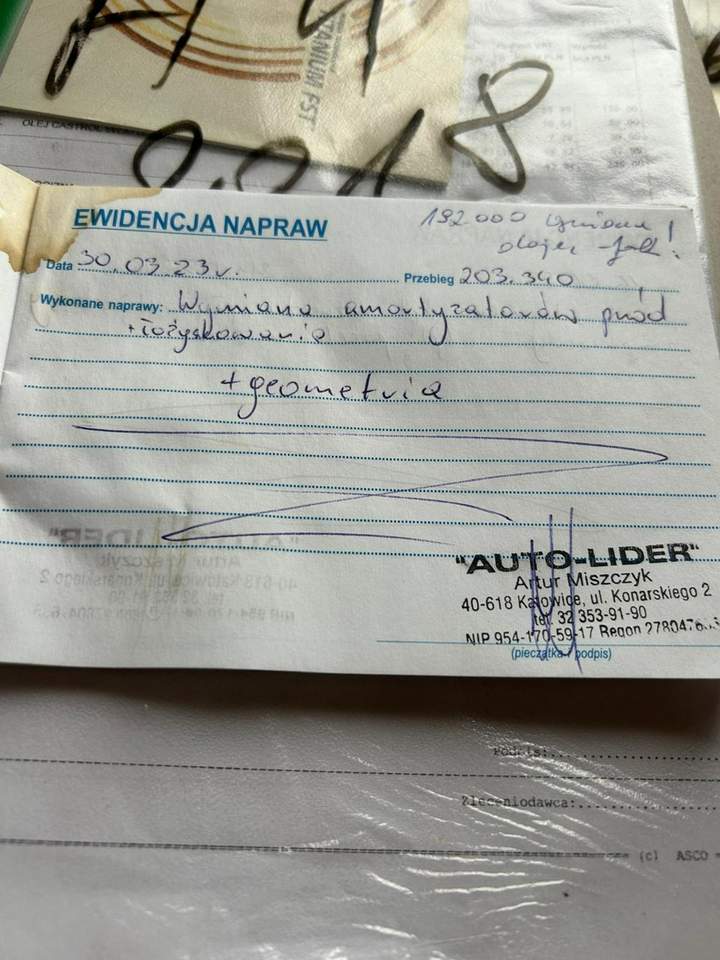 TANIUM FST
OLEJ CASTROL
EWIDENCJA NAPRAW
192000
oleju
Data 30.03.23r. Przebieg 203.340
Wykonane naprawy: Wymiana amortyzatorów przód
+ łożyskowania
+ geometria
"AUTO-LIDER"
Artur Miszczyk
40-618 Katowice, ul. Konarskiego 2
tel. 32 353-91-90
NIP 954-170-59-17 Regon
(pieczątka i podpis)
Podpis:
Zleceniodawca:
(c) ASCO